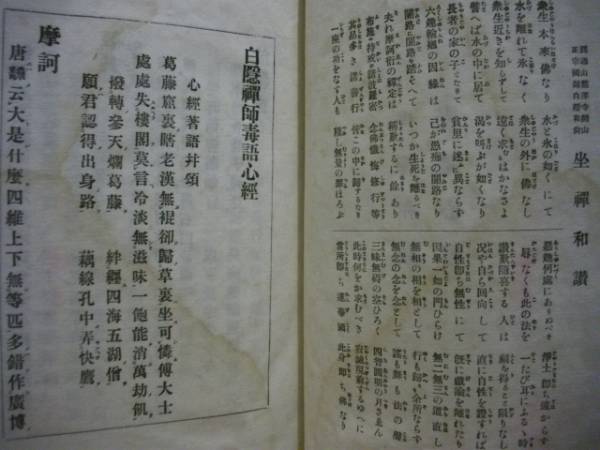 圓通山龍澤寺開山
正宗國師白隱和尚
坐禪和讃
衆生本來佛なり 水と氷の如くにて
水を離れて氷なく 衆生の外に佛なし
衆生近きを知らずして 遠く求むるはかなさよ
譬へば水の中に居て 渇を叫ぶが如くなり
長者の家の子となりて 貧里に迷ふに異ならず
六趣輪廻の因縁は 己が愚痴の闇路なり
闇路に闇路を踏そへて いつか生死を離るべき
夫れ摩訶衍の禪定は 稱歎するに餘りあり
布施や持戒の諸波羅蜜 念佛懺悔修行等
其品多き諸善行 皆この中に歸するなり
一座の功をなす人も 積し無量の罪ほろぶ
惡趣何處にありぬべき 淨土即ち遠からず
辱なくも此の法を 一たび耳にふるゝ時
讃歎隨喜する人は 福を得ること限りなし
況や自ら回向して 直に自性を證すれば
自性即ち無性にて 既に戲論を離れたり
因果一如の門ひらけ 無二無三の道直し
無相の相を相として 行も歸も余所ならず
無念の念を念として 謠も舞も法の聲
三昧無碍の空ひろく 四智圓明の月さえん
此時何をか求むべき 寂滅現前するゆへに
當所即ち蓮華國 此身即ち佛なり
白隱禪師毒語心經
心經著語幷頌
葛藤窟裏瞎老漢無裩卻歸草裏坐可憐傅大士
處處失樓閣莫言冷淡無滋味一飽能消萬劫飢
撥轉參天爛葛藤 絆纏四海五湖僧
願君認得出身路 藕線孔中弄快鷹
摩訶
唐飜云大是什麼四維上下無等匹多錯作廣博